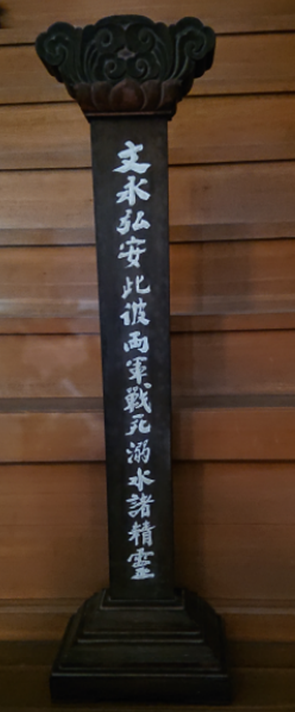 文永弘安此彼両軍戰死溺水諸精霊